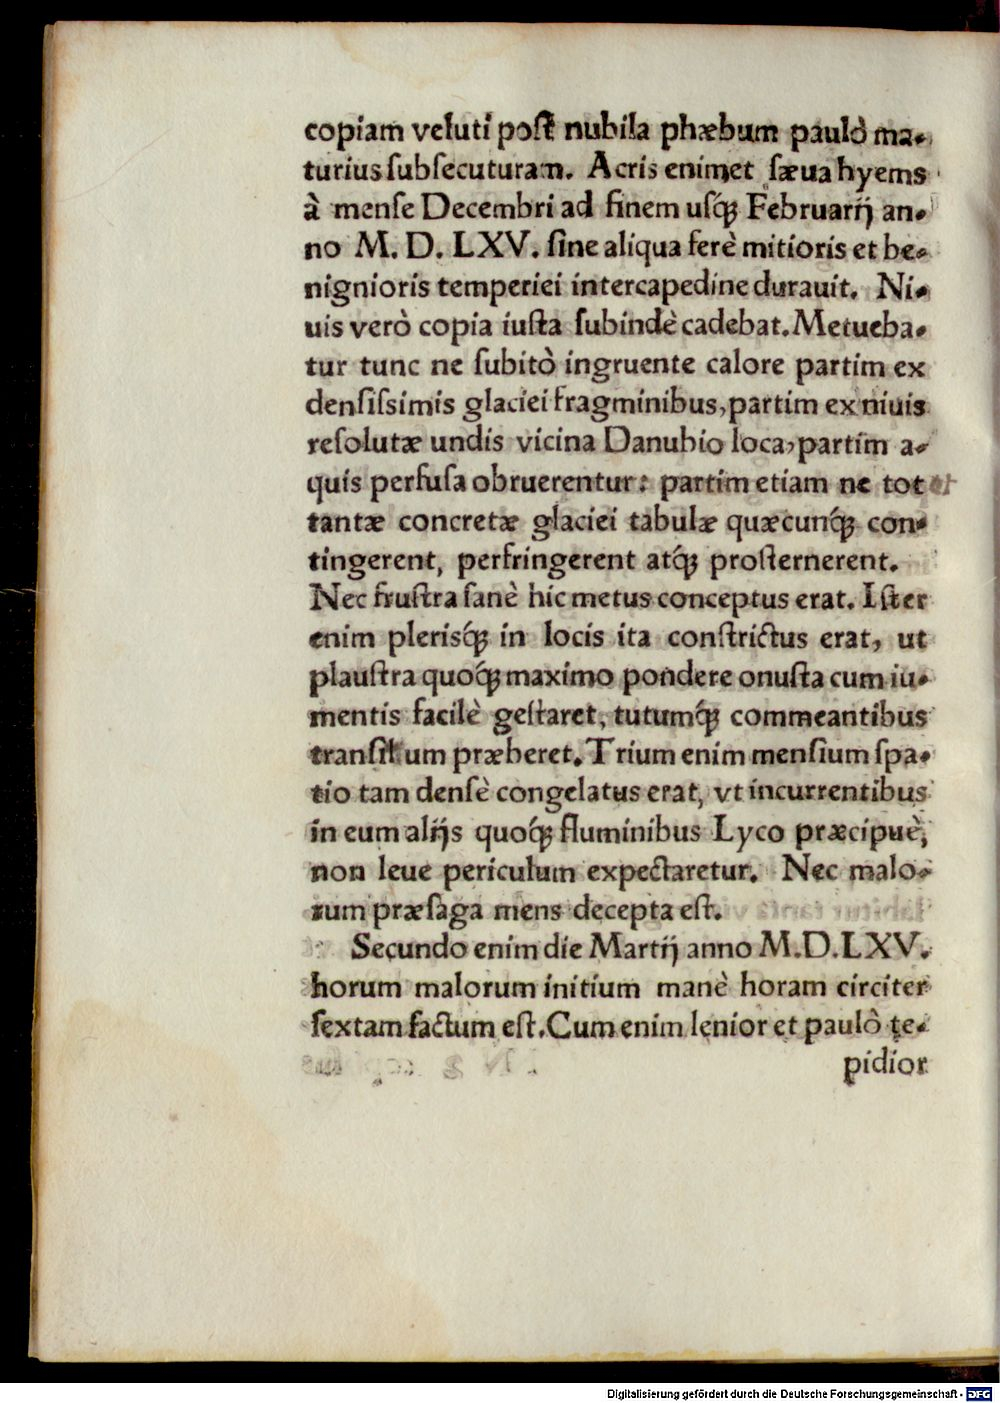 copiam veluti post nubila phæbum paulò ma-
turius subsecuturam. Acris enim et sæua hyems
à mense Decembri ad finem usq́ꝫ Februarij an-
no M. D. LXV. sine aliqua ferè mitioris et be-
nignioris temperiei intercapedine durauit. Ni-
uis verò copia iusta subindè cadebat. Metueba-
tur tunc ne subitò ingruente calore partim ex
densissimis glaciei fragminibus, partim ex niuis
resolutæ undis vicina Danubio loca, partim a-
quis perfusa obruerentur: partim etiam ne tot
tantæ concretæ glaciei tabulæ quæcunq́ꝫ con-
tingerent, perfringerent atq́ꝫ prosternerent.
Nec frustra sanè hic metus conceptus erat. Ister
enim plerisq́ꝫ in locis ita constrictus erat, ut
plaustra quoq́ꝫ maximo pondere onusta cum iu-
mentis facilè gestaret, tutumq́ꝫ commeantibus
transitum præberet. Trium enim mensium spa-
tio tam densè congelatus erat, vt incurrentibus
in eum alijs quoq́ꝫ fluminibus Lyco præcipuè,
non leue periculum expectaretur. Nec malo-
rum præsaga mens decepta est.
Secundo enim die Martij anno M.D.LXV.
horum malorum initium manè horam circiter
sextam factum est. Cum enim lenior et paulò te-
pidior
Digitalisierung gefördert durch die Deutsche Forschungsgemeinschaft - DFG